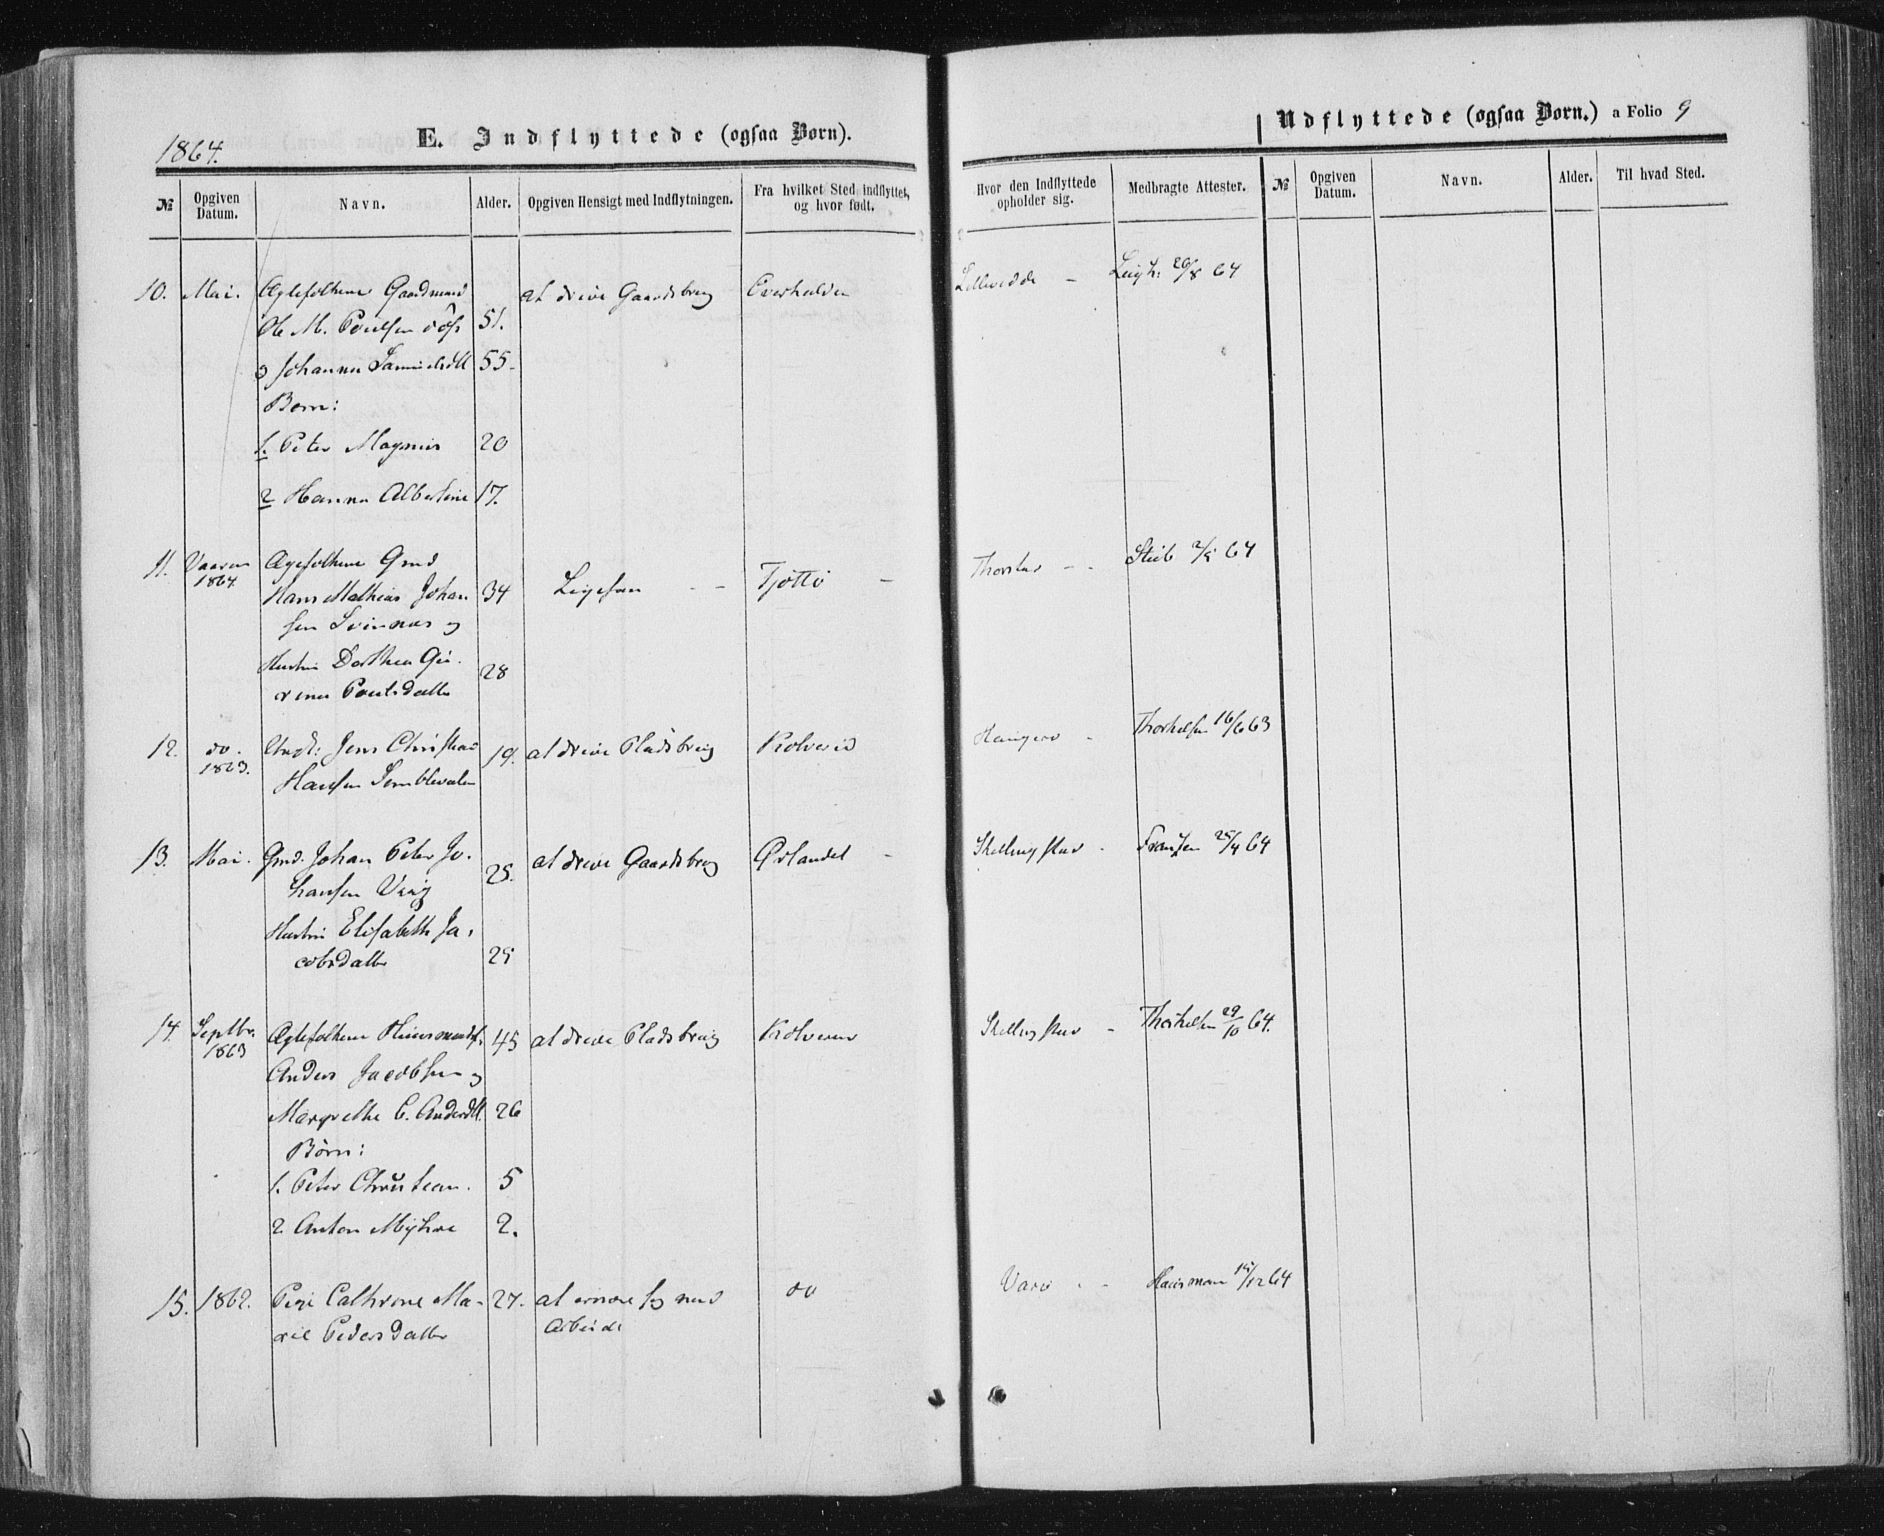 1864.
E. Indflyttede (ogsaa Børn).
№ Opgiven Datum. Navn. Alder. Opgiven Hensigt med Indflytningen. Fra hvilket Sted indflyttet, og hvor født.
10. Mai. Ægtefolkene Gaardmand at drive Gaardsbrug Overhalden
Ole M. Poulsen 51.
o Johanna Samuelsdtt 55.
Børn:
1. Peter Magnus 20
2 Hanna Albertine 17.
11. Vaaren 1864. Ægtefolkene Gmd
Hans Mathias Johan 34 Ligesaa Tjøttø
sen Svinnæs og
Hustru Dorthea 28
Poulsdatter
12. do. 1863. Ungk: Jens Christian 19. at drive Pladsbrug Kolvereid
Hansen
13. Mai. Gmd. Johan Peter Jo- 25. at drive Gaardsbrug Ørlandet
hansen
Hustru Elisabeth Ja-
cobsdatter 29
14. Septbr. 1863 Ægtefolkene Huusmand 45 at drive Pladsbrug Kolvereid
Anders Jacobsen og
Margrethe C. Andersdtt. 26
Børn:
1. Peter Christian. 5
2 Anton Myhre 2.
15. 1862. Pige Cathrine Ma- 27. at ernære sig med do
rie Pedersdatter Arbeide
Udflyttede (ogsaa Børn.) a Folio 9
Hvor den Indflyttede opholder sig. Medbragte Attester. № Opgiven Datum. Navn. Alder. Til hvad Sted.
20/8 64
Thorstad
Thorkelsen 16/6 63
Frantzen 25/4 64
Thorkelsen 29/10 64.
Værø Hansman 15/12 64